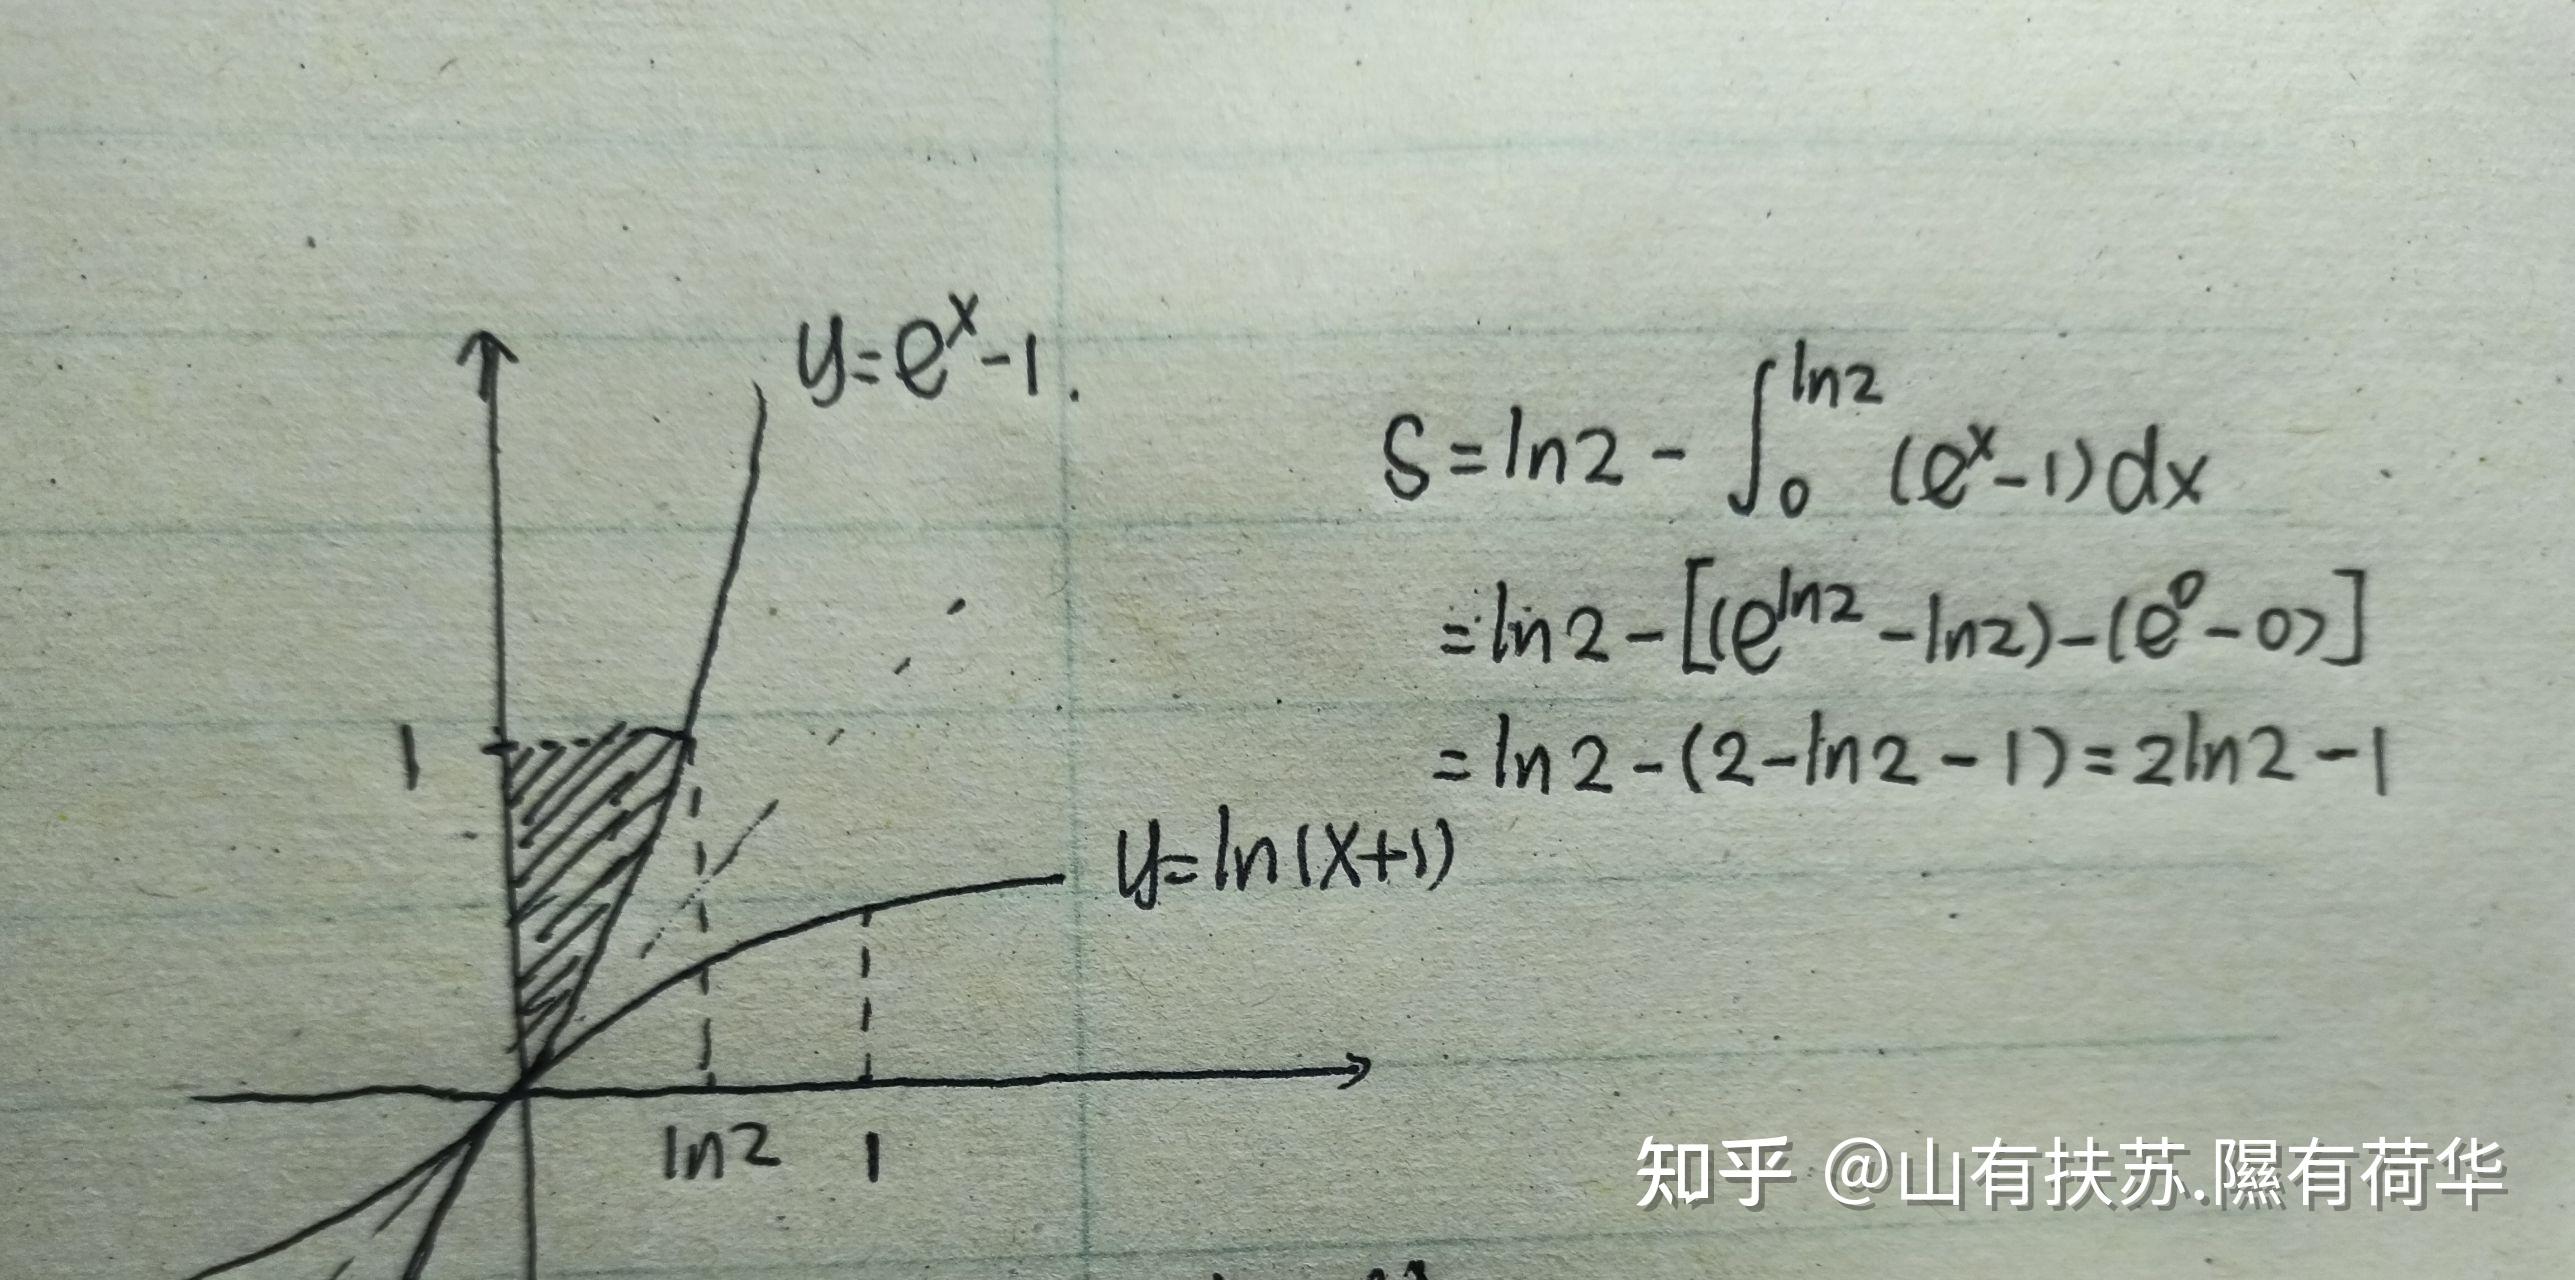 y=e^x-1.
S=ln2-∫_0^{ln2}(e^x-1)dx
=ln2-[(e^{ln2}-ln2)-(e^0-0)]
=ln2-(2-ln2-1)=2ln2-1
1
y=ln(x+1)
ln2 1
知乎 @山有扶苏.隰有荷华